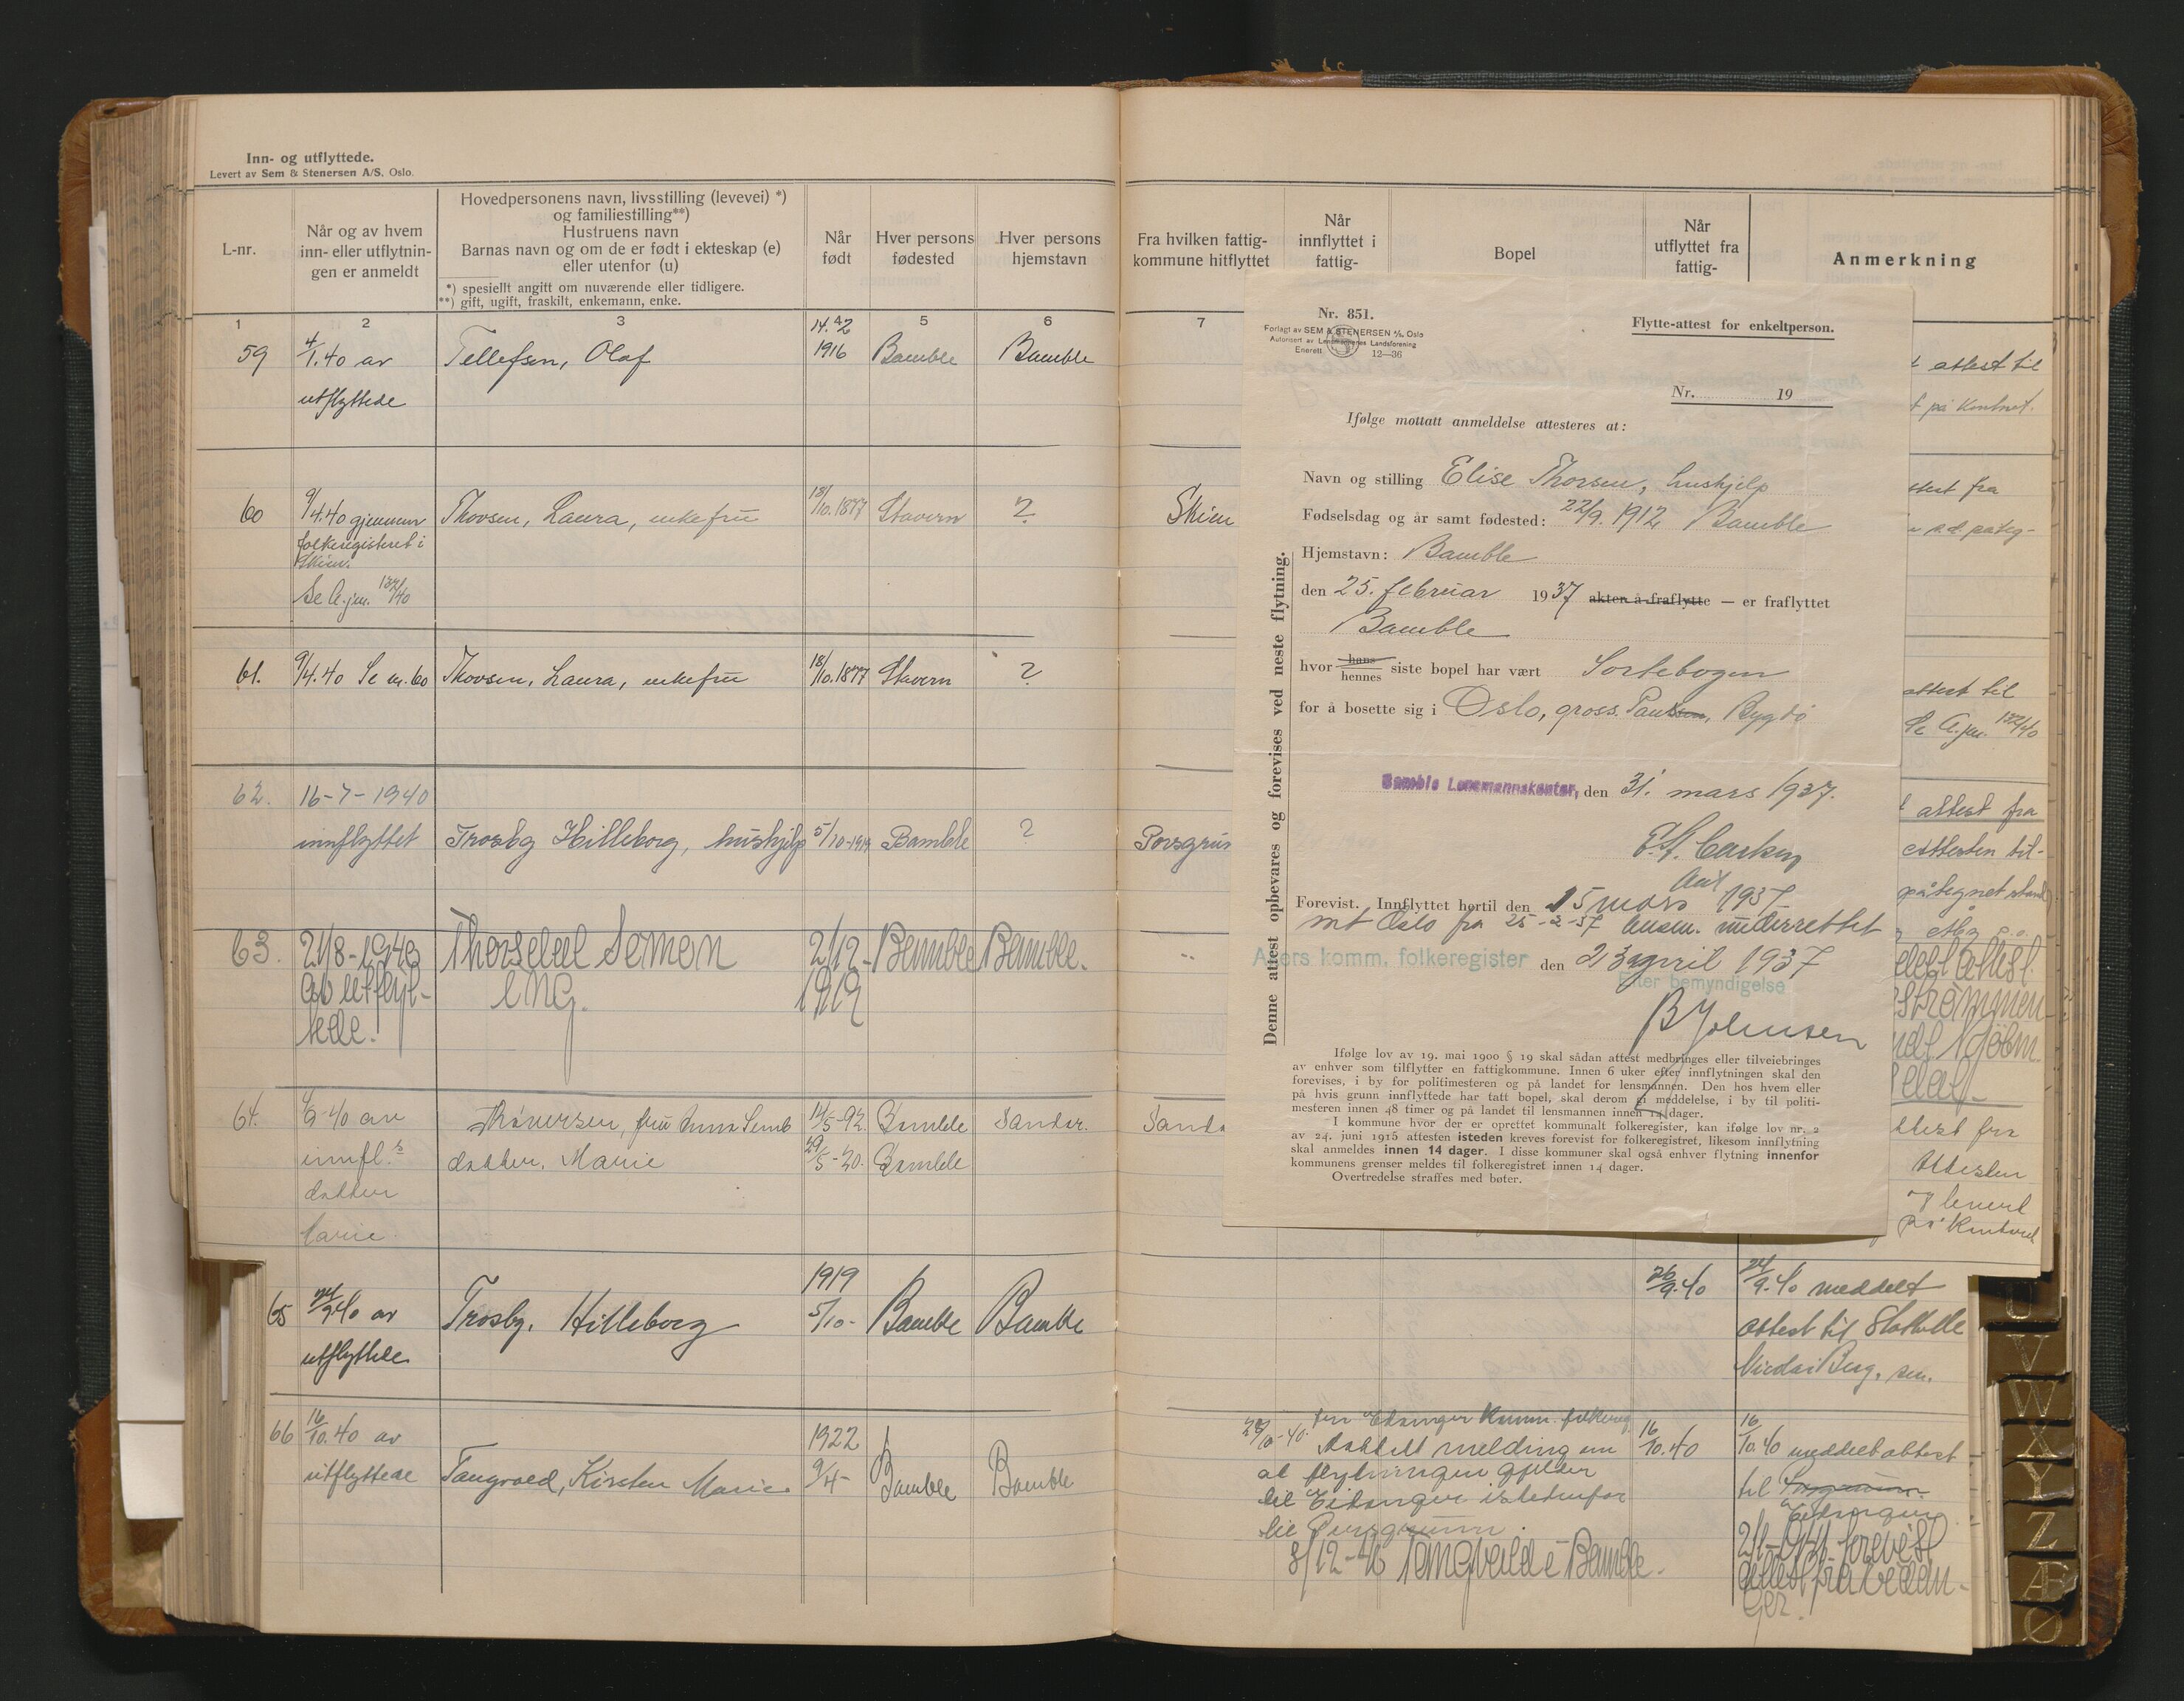 Inn- og utflyttede.
Levert av Sem & Stenersen A/S. Oslo.
L-nr.
Når og av hvem
inn- eller utflytnin-
gen er anmeldt
Hovedpersonens navn, livsstilling (levevei) *)
og familiestilling**)
Hustruens navn
Barnas navn og om de er født i ekteskap (e)
eller utenfor (u)
*) spesiellt angitt om nuværende eller tidligere.
**) gift, ugift, fraskilt, enkemann, enke.
Når
født
Hver persons
fødested
Hver persons
hjemstavn
1 2 3 4 5 6
59 4/1.40 av Tellefsen, Olaf 14.2 1916 Bamble Bamble
utflyttede
60 9/4.40 gjennem Thorsen, Laura, enkefru 18/10.1877 Stavern ?
folkeregisteret i
Skien.
Se A.jnr. 132/40
61. 9/4.40 Se nr. 60 Thorsen, Laura, enkefru 18/10.1877 Stavern ?
62. 16-7-1940
innflyttet Trosby Hilleborg, hushjelp 5/10-1919 Bamble ?
63. 21/8-1940 Thorsdal Simon 2/12- Bamble Bamble.
av utflyt- ung. 1919
tede.
64. 4/9-40 av fru Anna 14/5-92. Bamble Sandar.
innfl.s datter, Marie 29/5-20. Bamble
datter
Marie.
65 24/9.40 av Trosby, Hilleborg 1919 5/10- Bamble Bamble
utflyttede
66 16/10.40 av 1922
utflyttede Tangvald, Kirsten Marie 9/4- Bamble Bamble
Fra hvilken fattig-
kommune hitflyttet
Når
innflyttet i
fattig-
Bopel
Når
utflyttet fra
fattig-
Anmerkning
7
Skien
Porsgrun
Sanda
Nr. 851.
Forlagt av SEM & STENERSEN A/S. Oslo
Autorisert av Lensmennenes Landsforening
Enerett 12—36
Flytte-attest for enkeltperson.
Nr. 19
Ifølge mottatt anmeldelse attesteres at:
Navn og stilling Elise Thorsen, hushjelp
Fødselsdag og år samt fødested: 22/9. 1912 Bamble
Hjemstavn: Bamble
den 25. februar 1937 akter å fraflytte — er fraflyttet
Bamble
hvor hans hennes siste bopel har vært Sortebogen
for å bosette sig i Oslo, gross. Paulsen, Bygdø
Bamble Lensmannskontor, den 31. mars 1937.
Forevist. Innflyttet hertil den 15 mars 1937
mt Oslo fra 25-2-37 Ansm. underrettet
Akers komm. folkeregister den 23 april 1937
Etter bemyndigelse
B Johnsen
Denne attest opbevares og forevises ved neste flytning.
Ifølge lov av 19. mai 1900 § 19 skal sådan attest medbringes eller tilveiebringes
av enhver som tilflytter en fattigkommune. Innen 6 uker efter innflytningen skal den
forevises, i by for politimesteren og på landet for lensmannen. Den hos hvem eller
på hvis grunn innflyttede har tatt bopel, skal derom gi meddelelse, i by til politi-
mesteren innen 48 timer og på landet til lensmannen innen 14 dager.
I kommune hvor der er oprettet kommunalt folkeregister, kan ifølge lov nr. 2
av 24. juni 1915 attesten isteden kreves forevist for folkeregistret, likesom innflytning
skal anmeldes innen 14 dager. I disse kommuner skal også enhver flytning innenfor
kommunens grenser meldes til folkeregistret innen 14 dager.
Overtredelse straffes med bøter.
attest til
på kontoret.
attest til
Se A.jnr. 132/40
attest fra
attesten til-
Strømmen
Attesten
og levert
på Kontoret
26/9.40 24/9.40 meddelt
attest til Stathelle
16/10.40 16/10.40 meddelt attest
Mottatt melding om
at flytningen gjelder
til Eidanger istedenfor
til Porsgrunn.
8/12-40 Tangvald i Bamble.
til Porsgrunn.
Eidanger
2/1-1941 forevist
attest fra Eidan-
ger.
U
V
W
X
Y
Z
Æ
Ø